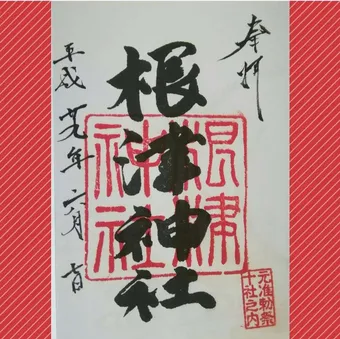 奉拝
根津神社
根津
神社
元准勅祭
十社之内
平成廿九年六月日